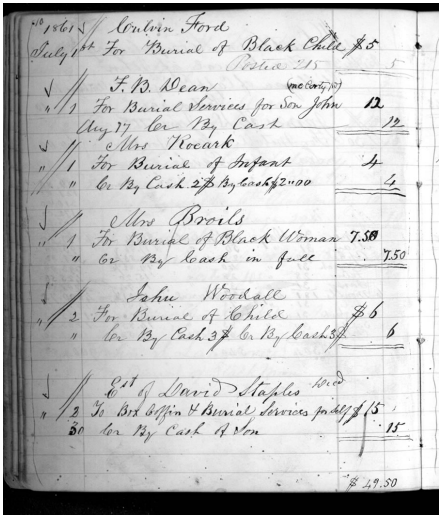 1861 Culvin Ford
July 1st For Burial of Black Child $5
Posted 215 5
F. B. Dean
" 1 For Burial Services for Son John 12
Aug 17 Cr By Cash 12
Mrs Rocark
" 1 For Burial of Infant 4
" Cr By Cash 2$ By Cash $2"00 4
Mrs Broils
" 1 For Burial of Black Woman 7.50
" Cr By Cash in full 7.50
John Woodall
" 2 For Burial of Child $6
" Cr By Cash 3$ Cr By Cash 3$ 6
Est of David Staples Decd
" 2 To Box Coffin & Burial Services for Self $15
30 Cr By Cash of Son 15
$49.50